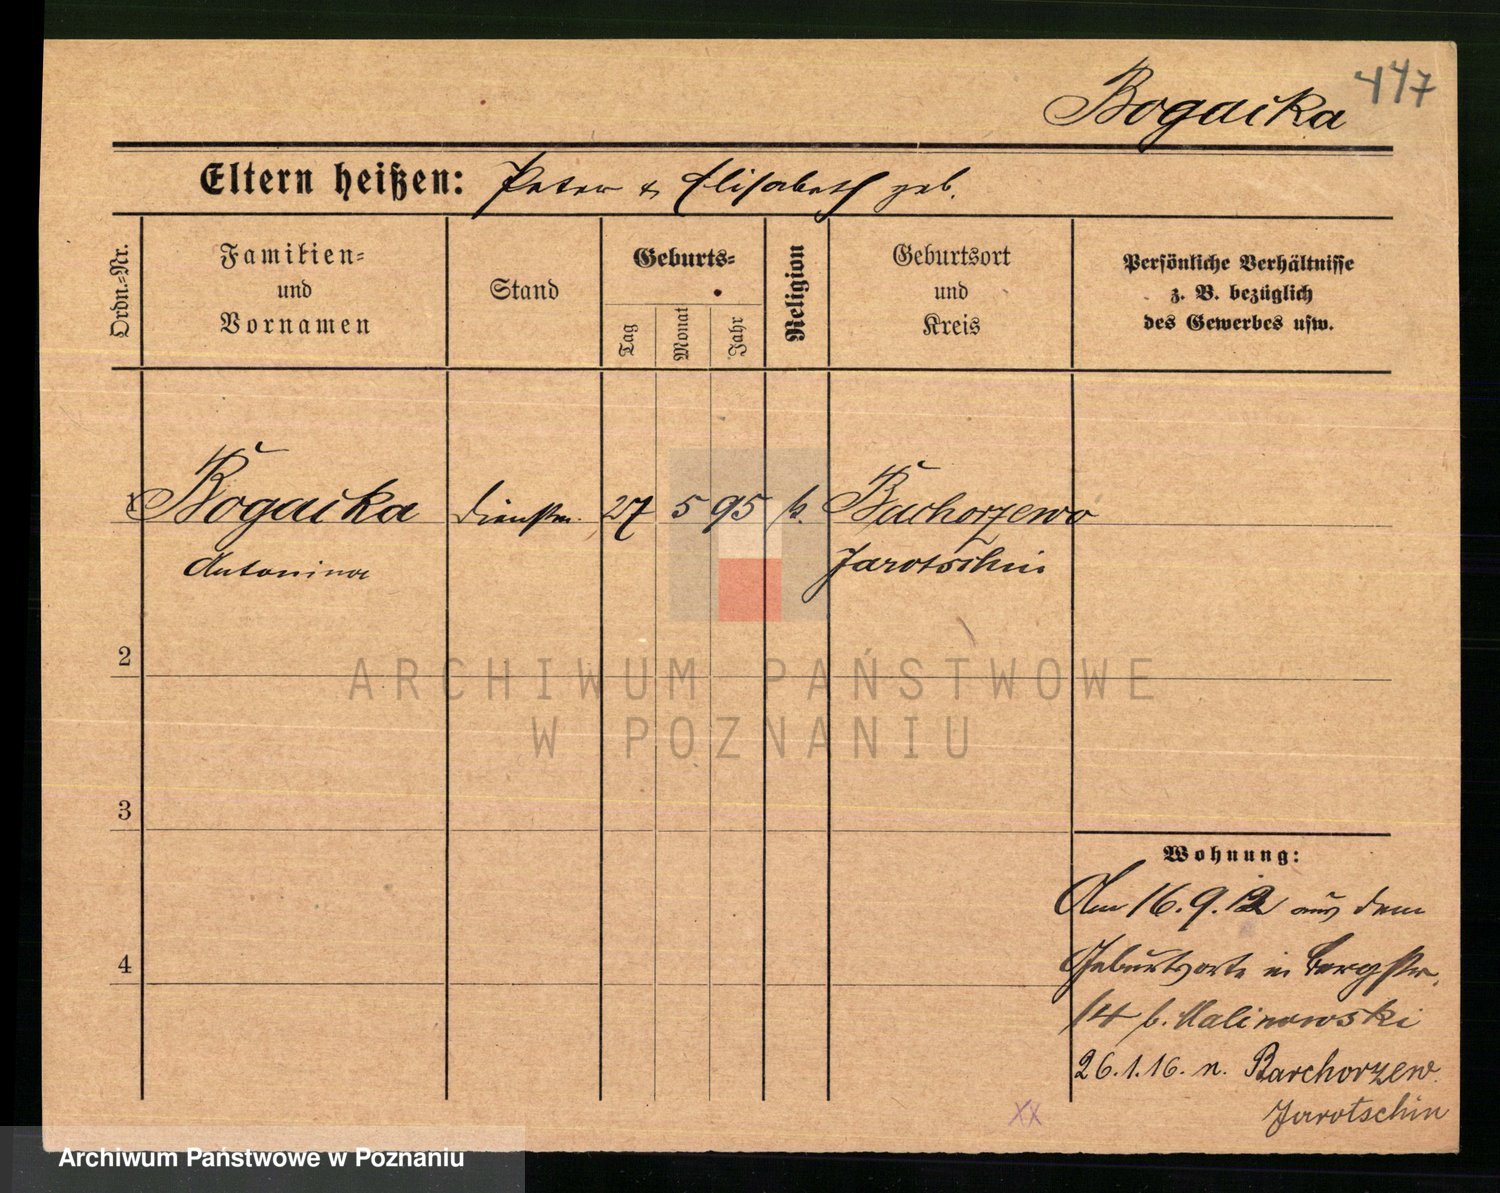 447
Bogacka
Eltern heißen: Peter & Elisabeth geb.
Ordn.-Nr.
Familien-
und
Vornamen
Stand
Geburts-
Tag
Monat
Jahr
Religion
Geburtsort
und
Kreis
Persönliche Verhältnisse
z. B. bezüglich
des Gewerbes usw.
1 Bogacka Dienstm. 27 5 95 k. Bachorzewo
Antonina Jarotschin
2
3
4
Wohnung:
Am 16.9.12 aus dem
Geburtsorte in Bergstr.
14 b. Malinowski
26.1.16. n. Barchorzew
Jarotschin
XX
ARCHIWUM PAŃSTWOWE
W POZNANIU
Archiwum Państwowe w Poznaniu